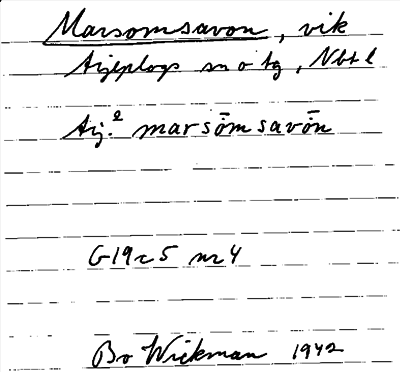 Marsomsavon, vik
Arjeplogs sn o tg, Nbtl
Arj.² marsōmsavōn
G19c5 nr 4
Bo Wickman 1942